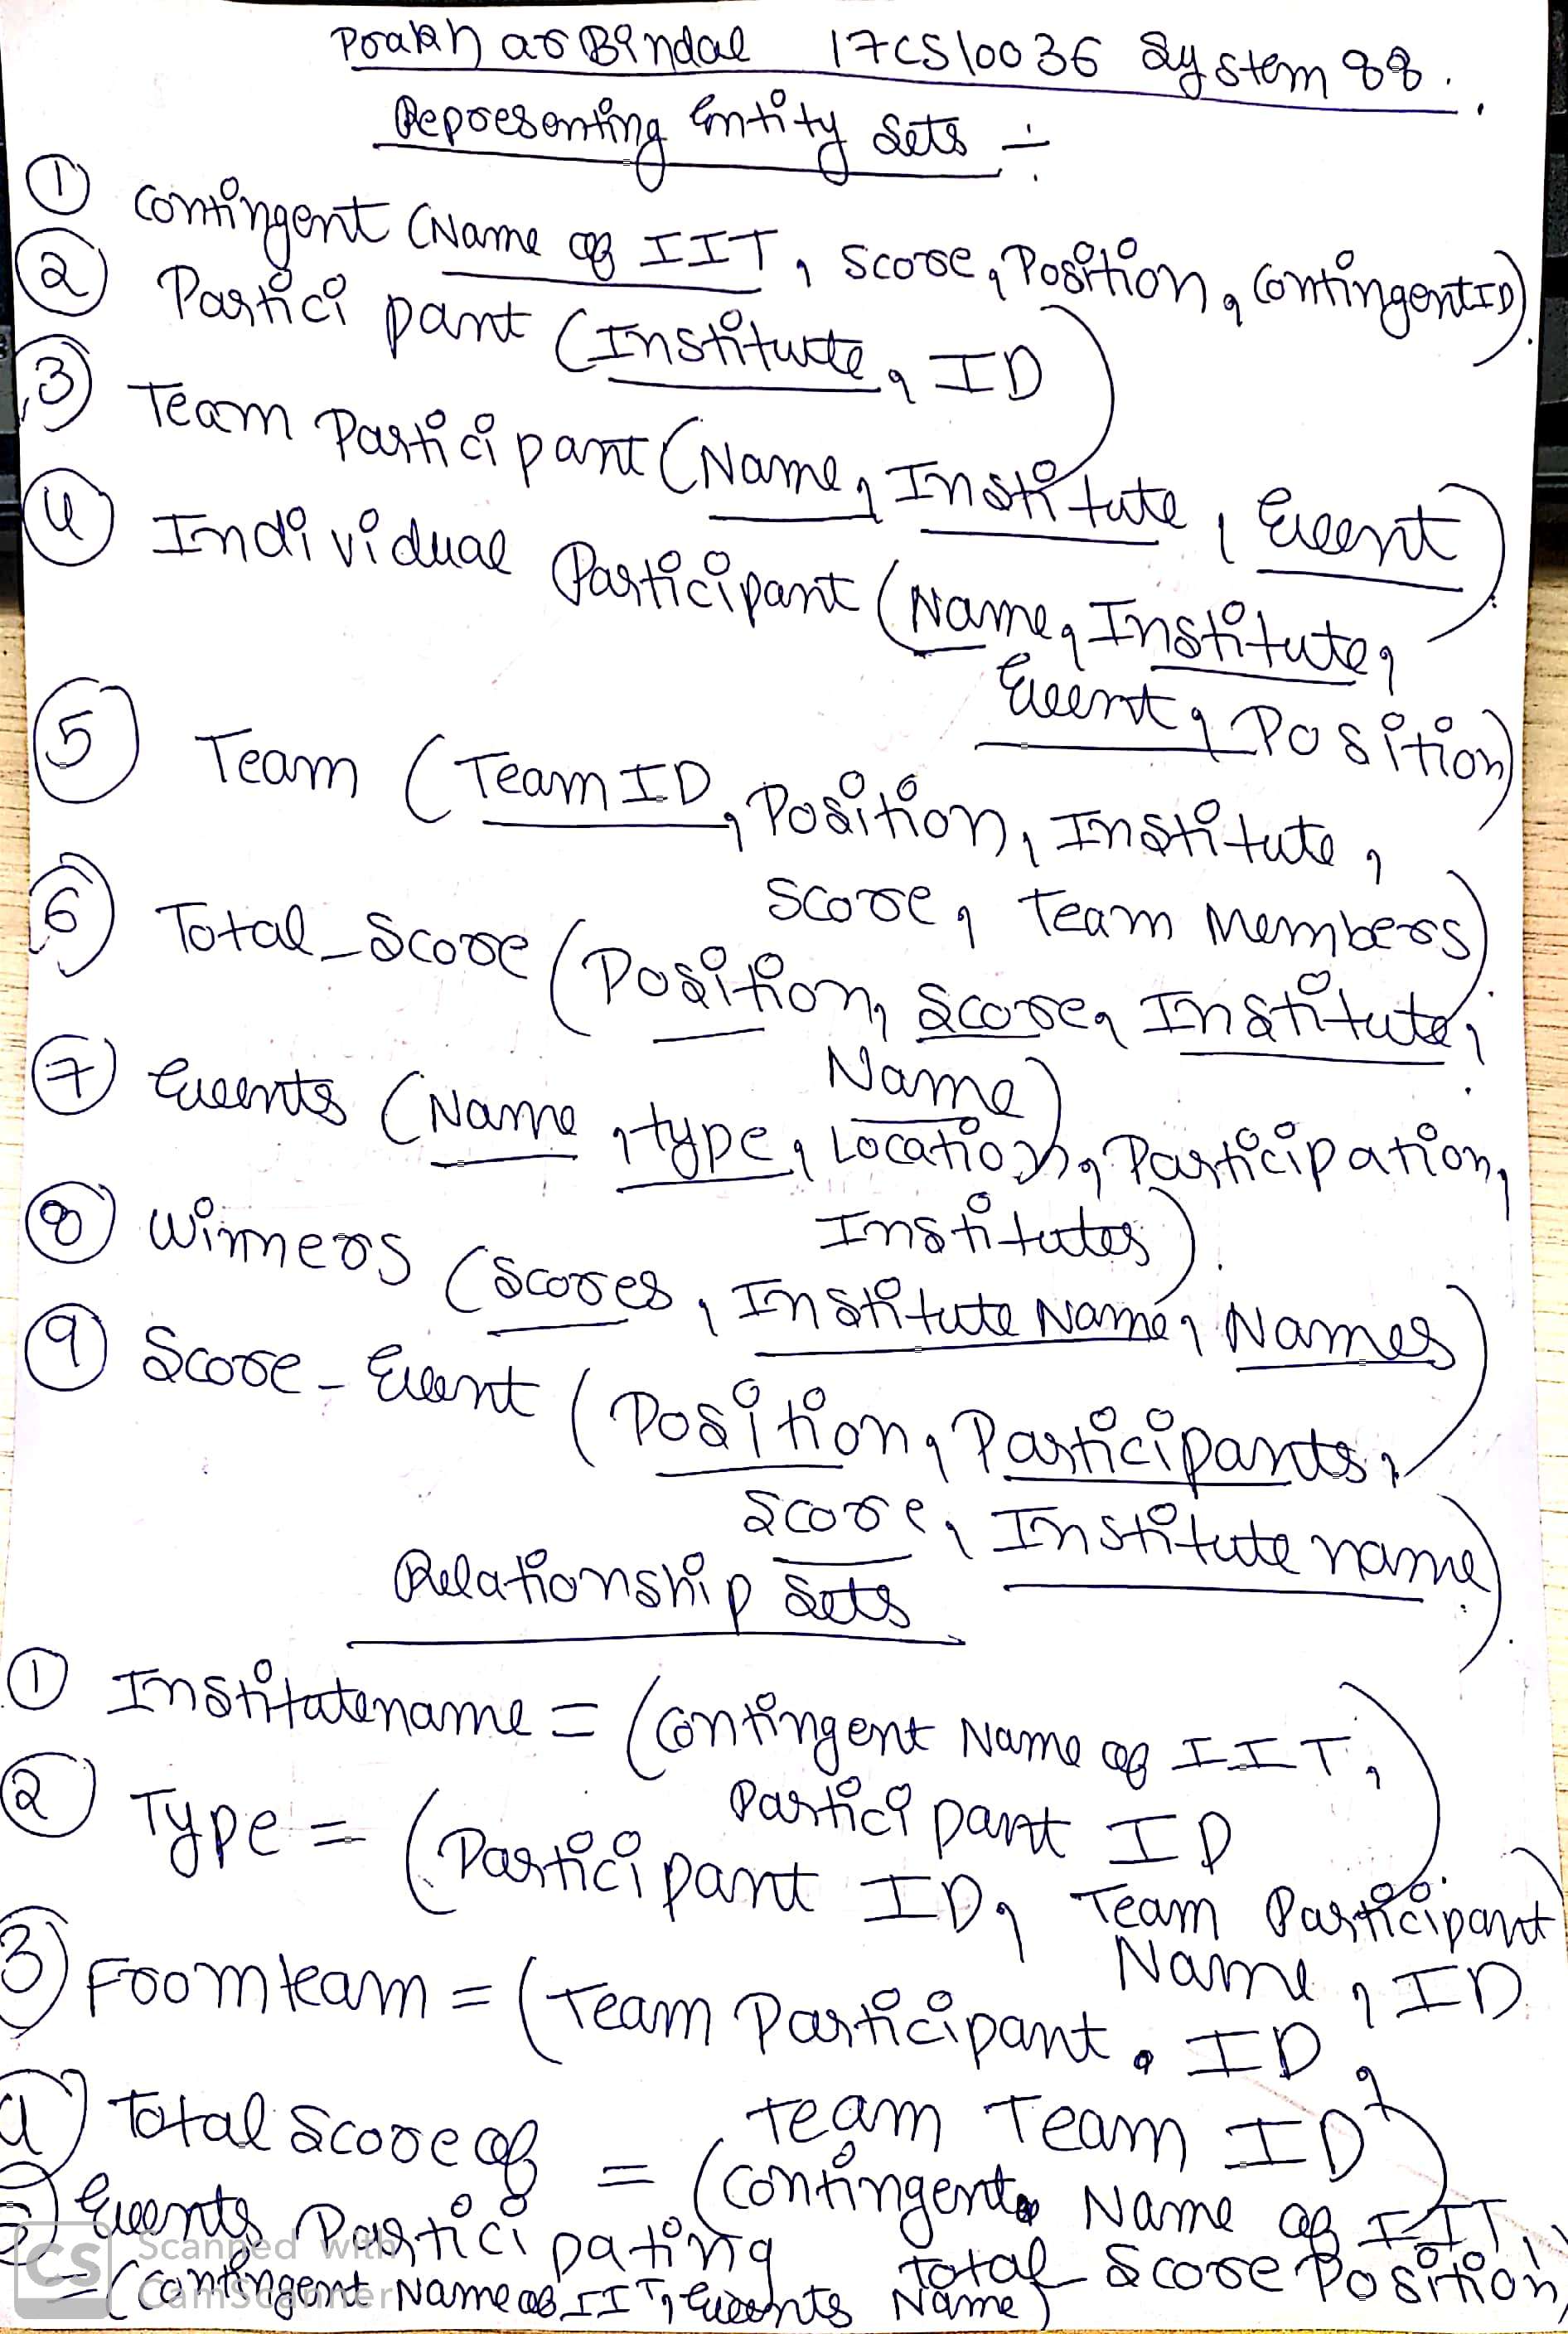 Prakhar Bindal 17CS10036 System 88.
Representing Entity Sets :-
① Contingent (Name of IIT, Score, Position, ContingentID)
② Participant (Institute, ID)
③ Team Participant (Name, Institute, Event)
④ Individual Participant (Name, Institute,
Event, Position)
⑤ Team (Team ID, Position, Institute,
Score, Team Members)
⑥ Total_Score (Position, Score, Institute,
Name)
⑦ Events (Name, type, Location, Participation,
Institutes)
⑧ Winners (Scores, Institute Name, Names)
⑨ Score_Event (Position, Participants,
Score, Institute name)
Relationship Sets
① Institutename = (Contingent Name of IIT,
Participant ID)
② Type = (Participant ID, Team Participant
Name, ID
③ Fromteam = (Team Participant. ID,
Team Team ID)
④ Total Score of = (Contingent Name of IIT,
Total_Score Position)
⑤ Events Participating
= (Contingent Name of IIT, Events Name)
CS Scanned with
CamScanner